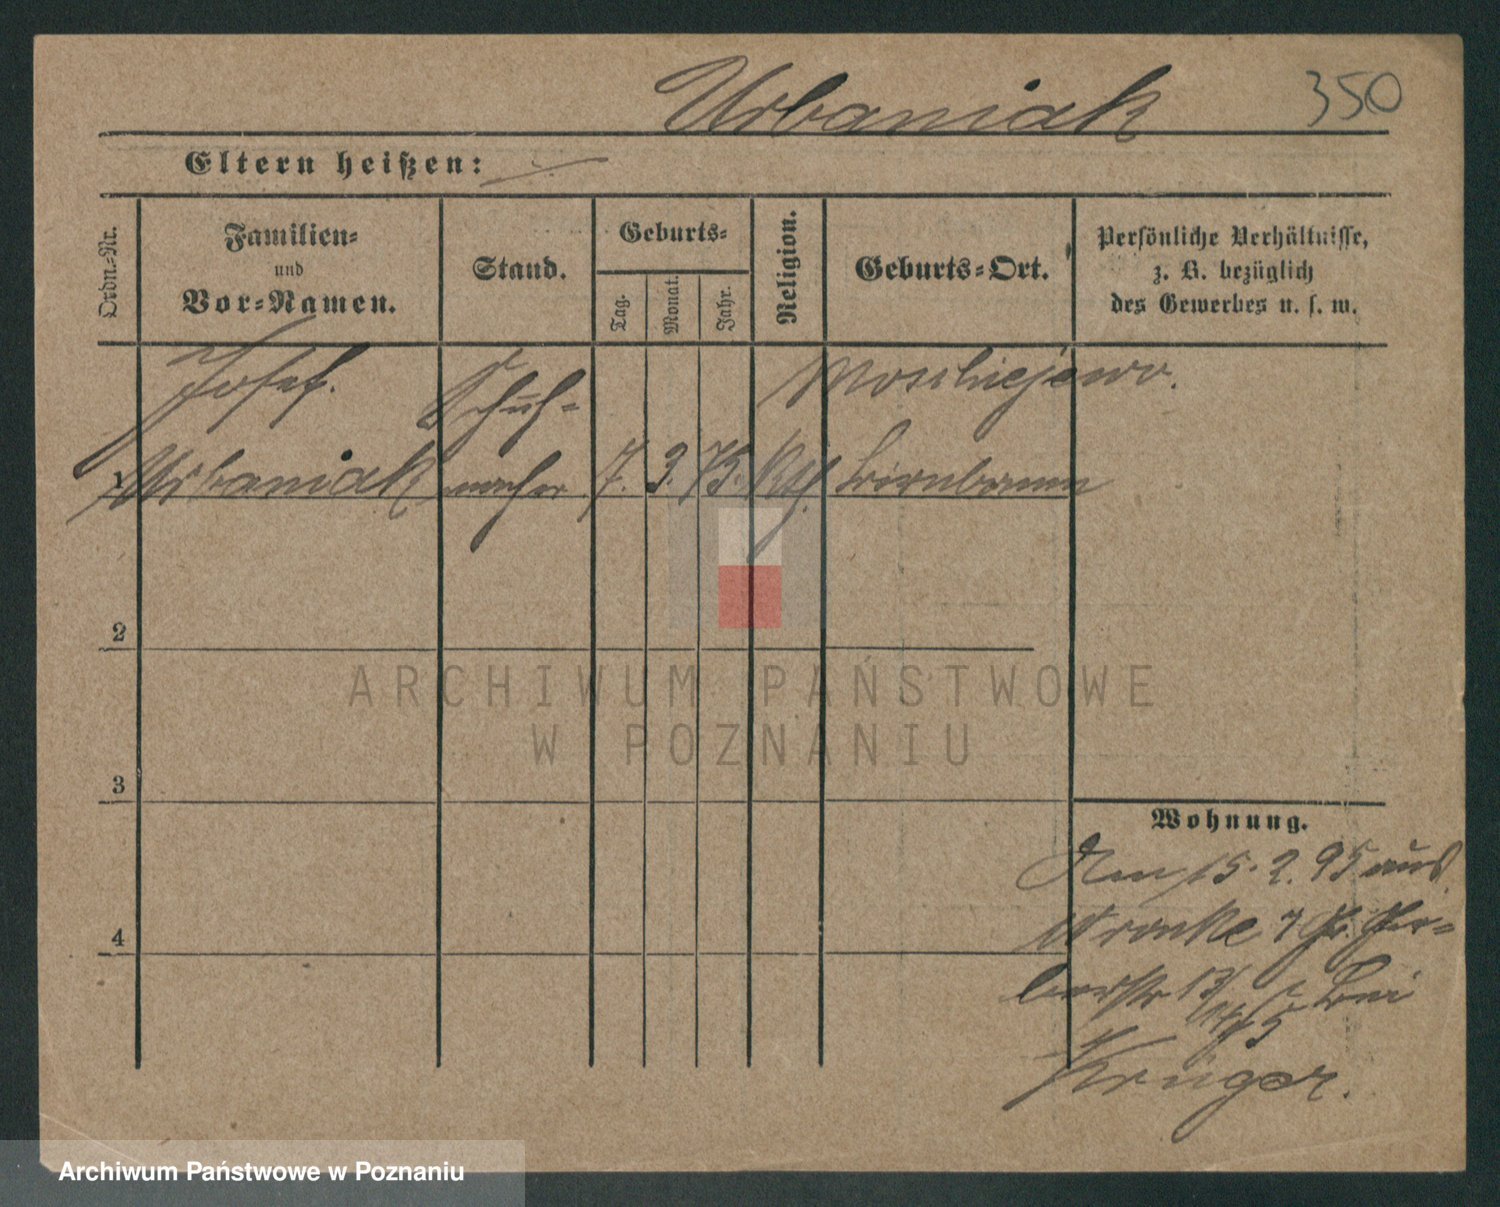 Urbaniak 350
Eltern heißen:
Ordn.-Nr.
Familien-
und
Vor-Namen.
Stand.
Geburts-
Tag.
Monat.
Jahr.
Religion.
Geburts-Ort.
Persönliche Verhältnisse,
z. B. bezüglich
des Gewerbes u. s. w.
Josef. Schuh-
1 Urbaniak macher 7. 3. 75. Kth. Birnbaum
2
3
4
Wohnung.
Am 15. 2. 95 aus
Wronke
13 bei
Krüger.
ARCHIWUM PAŃSTWOWE
W POZNANIU
Archiwum Państwowe w Poznaniu